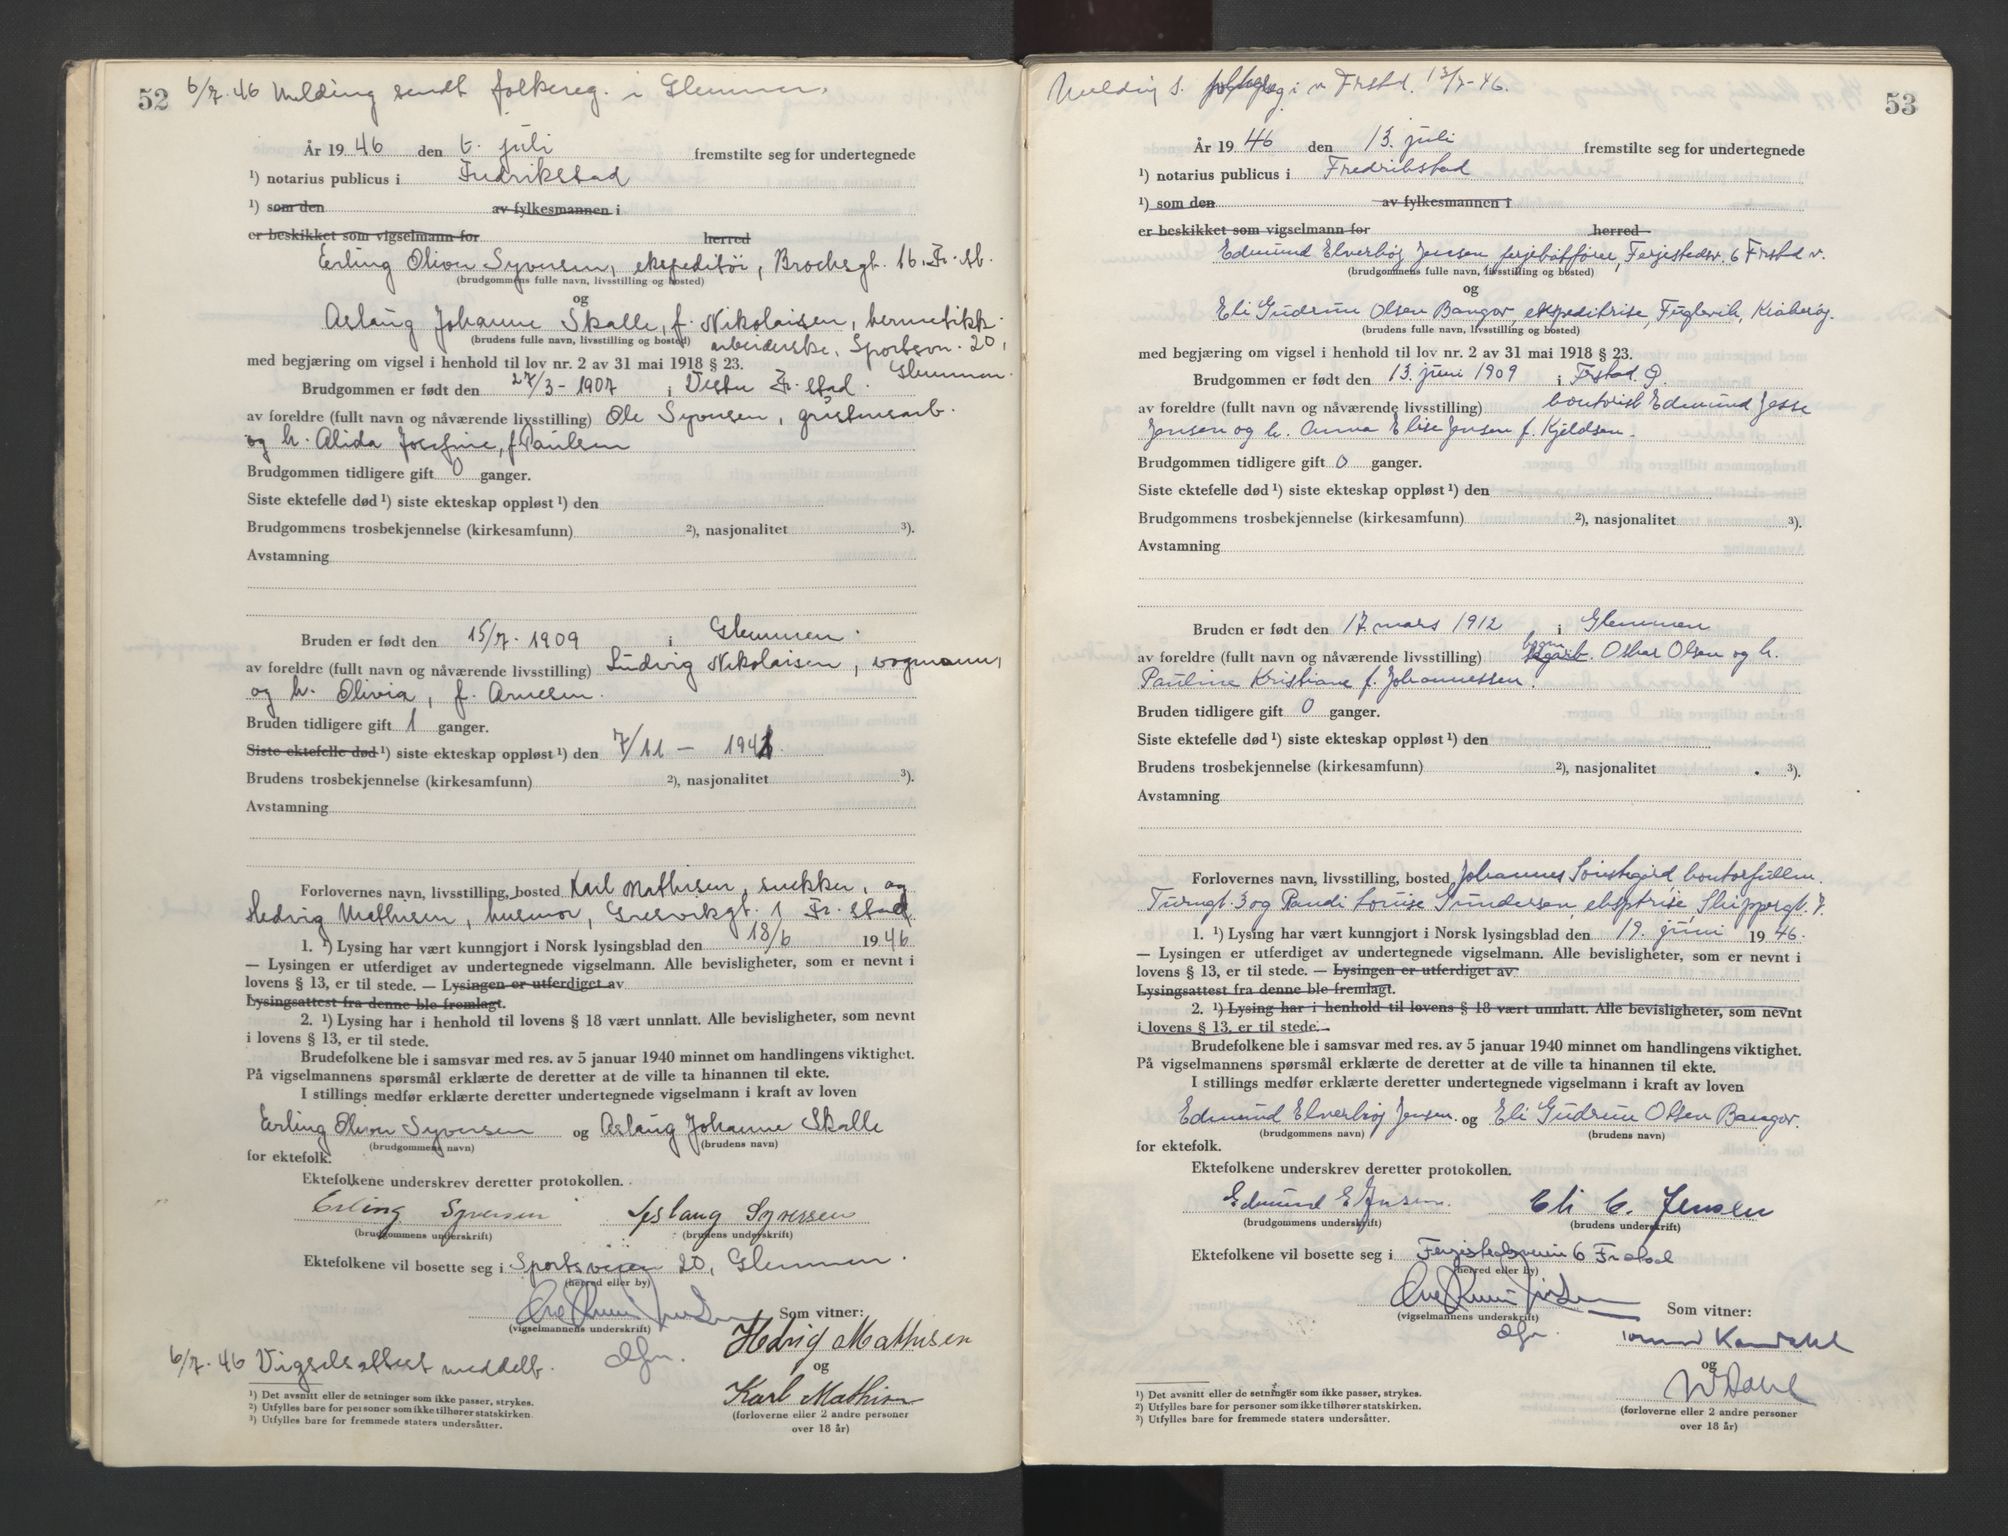 52 6/7.46 Melding sendt folkereg. i Glemmen.
År 1946 den 6. juli fremstilte seg for undertegnede
¹) notarius publicus i Fredrikstad
¹) som den av fylkesmannen i
er beskikket som vigselmann for herred
Erling Oliver Syversen, ekspeditør, Brochsgt. 16. Fr.st.
(brudgommens fulle navn, livsstilling og bosted)
og
Aslaug Johanne Skalle, f. Nikolaisen, hermetikk-
(brudens fulle navn, livsstilling og bosted) arbeiderske, Sportsvn. 20,
med begjæring om vigsel i henhold til lov nr. 2 av 31 mai 1918 § 23. Glemmen.
Brudgommen er født den 27/3 - 1907 i Vestre Fr.stad.
av foreldre (fullt navn og nåværende livsstilling) Ole Syversen, grustensarb.
og h. Alida Josefine, f. Paulsen
Brudgommen tidligere gift 0 ganger.
Siste ektefelle død ¹) siste ekteskap oppløst ¹) den
Brudgommens trosbekjennelse (kirkesamfunn) ²), nasjonalitet ³).
Avstamning
Bruden er født den 15/7. 1909 i Glemmen.
av foreldre (fullt navn og nåværende livsstilling) Ludvig Nikolaisen, vognmann,
og h. Olivia, f. Arnesen.
Bruden tidligere gift 1 ganger.
Siste ektefelle død ¹) siste ekteskap oppløst ¹) den 7/11 - 1941.
Brudens trosbekjennelse (kirkesamfunn) ²), nasjonalitet ³).
Avstamning
Forlovernes navn, livsstilling, bosted Karl Mathisen, snekker, og
Hedvig Mathisen, husmor, Gresvikgt. 1 Fr.stad
1. ¹) Lysing har vært kunngjort i Norsk lysingsblad den 18/6 1946
— Lysingen er utferdiget av undertegnede vigselmann. Alle bevisligheter, som er nevnt i
lovens § 13, er til stede. — Lysingen er utferdiget av
Lysingsattest fra denne ble fremlagt.
2. ¹) Lysing har i henhold til lovens § 18 vært unnlatt. Alle bevisligheter, som nevnt
i lovens § 13, er til stede.
Brudefolkene ble i samsvar med res. av 5 januar 1940 minnet om handlingens viktighet.
På vigselmannens spørsmål erklærte de deretter at de ville ta hinannen til ekte.
I stillings medfør erklærte deretter undertegnede vigselmann i kraft av loven
Erling Oliver Syversen og Aslaug Johanne Skalle
(brudgommens navn) (brudens navn)
for ektefolk.
Ektefolkene underskrev deretter protokollen.
Erling Syversen Aslaug Syversen
(brudgommens underskrift) (brudens underskrift)
Ektefolkene vil bosette seg i Sportsveien 20, Glemmen.
(herred eller by)
Som vitner:
(vigselmannens underskrift) Hedvig Mathisen
6/7.46 Vigselsattest meddelt. dfm.
og
Karl Mathisen
(forloverne eller 2 andre personer
over 18 år)
¹) Det avsnitt eller de setninger som ikke passer, strykes.
²) Utfylles bare for personer som ikke tilhører statskirken.
³) Utfylles bare for fremmede staters undersåtter.
Melding s. folkereg i v. Frstd. 13/7-46. 53
År 1946 den 13. juli fremstilte seg for undertegnede
¹) notarius publicus i Fredrikstad
¹) som den av fylkesmannen i
er beskikket som vigselmann for herred
Edmund Elverhøj Jensen ferjebåtfører, Ferjestedsv. 6 Frstad v.
(brudgommens fulle navn, livsstilling og bosted)
og
Eli Gudrun Olsen Bangor, ekspeditrise, Fuglevik, Kråkerøy.
(brudens fulle navn, livsstilling og bosted)
med begjæring om vigsel i henhold til lov nr. 2 av 31 mai 1918 § 23.
Brudgommen er født den 13. juni 1909 i Frstad. Ø.
av foreldre (fullt navn og nåværende livsstilling) kontorist Edmund Jesse
Jensen og h. Anna Elise Jensen f. Kjeldsen.
Brudgommen tidligere gift 0 ganger.
Siste ektefelle død ¹) siste ekteskap oppløst ¹) den
Brudgommens trosbekjennelse (kirkesamfunn) ²), nasjonalitet ³).
Avstamning
Bruden er født den 17. mars 1912 i Glemmen
av foreldre (fullt navn og nåværende livsstilling) Oskar Olsen og h.
Pauline Kristiane f. Johannessen.
Bruden tidligere gift 0 ganger.
Siste ektefelle død ¹) siste ekteskap oppløst ¹) den
Brudens trosbekjennelse (kirkesamfunn) ²), nasjonalitet ³).
Avstamning
Forlovernes navn, livsstilling, bosted Johannes Sönstegård kontorfullm.
Turngt. 3 og Randi Louise Gundersen, eksptrise, Skippergt. 7.
1. ¹) Lysing har vært kunngjort i Norsk lysingsblad den 19. juni 1946.
— Lysingen er utferdiget av undertegnede vigselmann. Alle bevisligheter, som er nevnt i
lovens § 13, er til stede. — Lysingen er utferdiget av
Lysingsattest fra denne ble fremlagt.
2. ¹) Lysing har i henhold til lovens § 18 vært unnlatt. Alle bevisligheter, som nevnt
i lovens § 13, er til stede.
Brudefolkene ble i samsvar med res. av 5 januar 1940 minnet om handlingens viktighet.
På vigselmannens spørsmål erklærte de deretter at de ville ta hinannen til ekte.
I stillings medfør erklærte deretter undertegnede vigselmann i kraft av loven
Edmund Elverhøj Jensen. og Eli Gudrun Olsen Bangor.
(brudgommens navn) (brudens navn)
for ektefolk.
Ektefolkene underskrev deretter protokollen.
Edmund E Jensen. Eli G. Jensen
(brudgommens underskrift) (brudens underskrift)
Ektefolkene vil bosette seg i Ferjestedsveien 6 Frstad
(herred eller by)
Som vitner:
(vigselmannens underskrift)
dfm.
og
(forloverne eller 2 andre personer
over 18 år)
¹) Det avsnitt eller de setninger som ikke passer, strykes.
²) Utfylles bare for personer som ikke tilhører statskirken.
³) Utfylles bare for fremmede staters undersåtter.